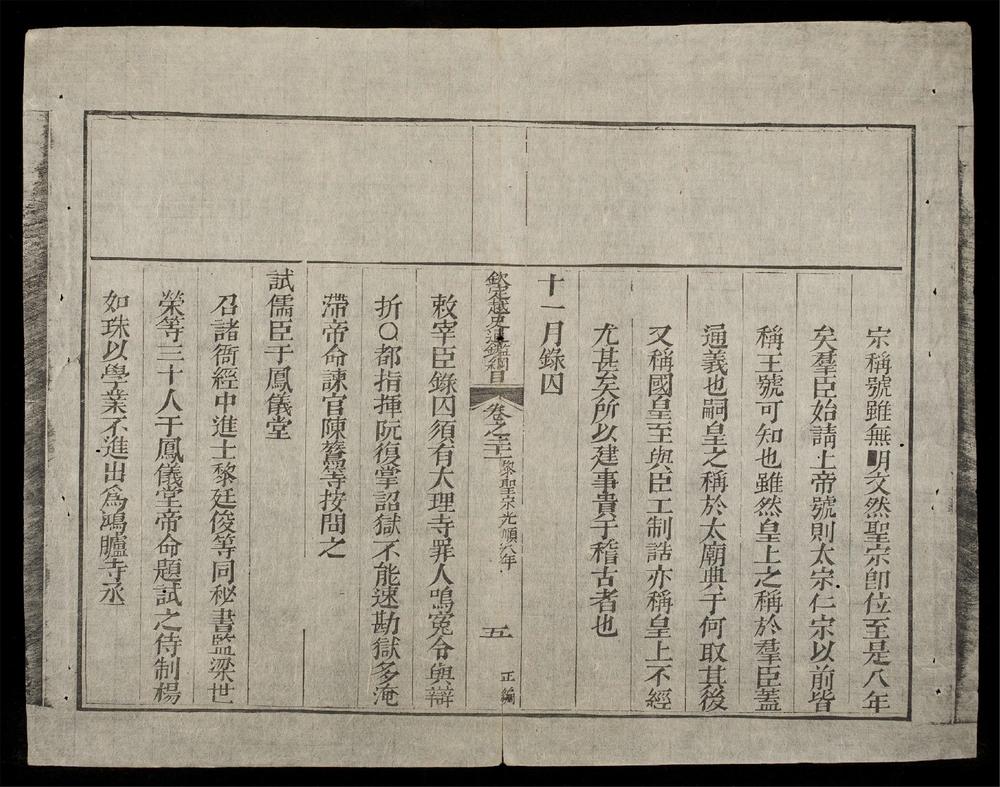 宗稱號雖無明文然聖宗卽位至是八年
矣羣臣始請上帝號則太宗仁宗以前皆
稱王號可知也雖然皇上之稱於羣臣蓋
通義也嗣皇之稱於太廟典于何取其後
又稱國皇至與臣工制誥亦稱皇上不經
尤甚矣所以建事貴于稽古者也
十一月錄囚
欽定越史通鑑綱目 卷之二十一 黎聖宗光順八年 五 正編
敕宰臣錄囚須有大理寺罪人鳴寃令與辯
折○都指揮阮復掌詔獄不能速勘獄多淹
滯帝命諫官陳鷙等按問之
試儒臣于鳳儀堂
召諸衙經中進士黎廷俊等同秘書監梁世
榮等三十人于鳳儀堂帝命題試之侍制楊
如珠以學業不進出爲鴻臚寺丞